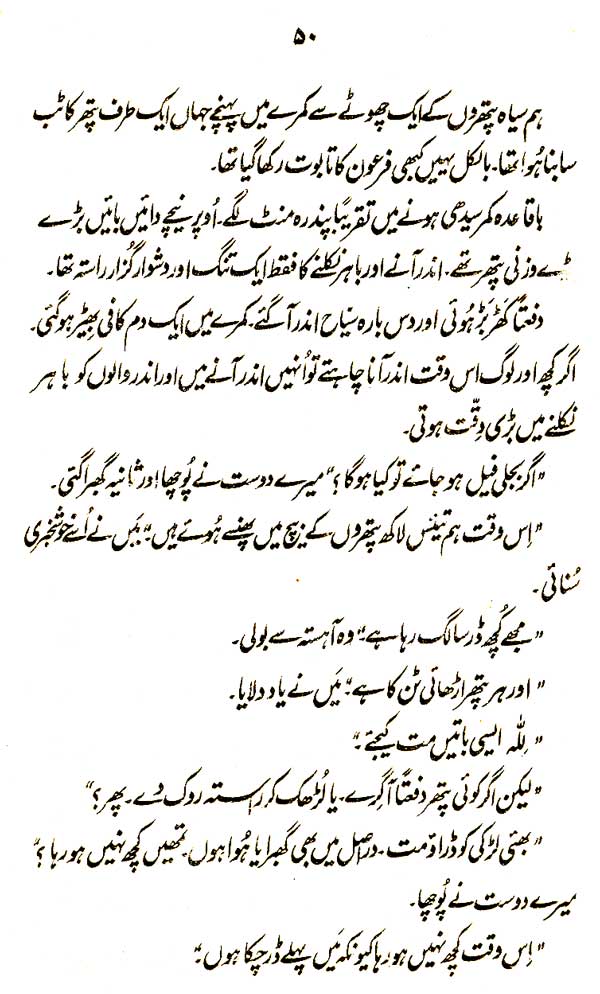 ۵۰
ہم سیاہ پتھروں کے ایک چھوٹے سے کمرے میں پہنچے جہاں ایک طرف پتھر کا ٹب
سا بنا ہُوا تھا۔ بالکل یہیں کبھی فرعون کا تابوت رکھا گیا تھا۔
باقاعدہ کمر سیدھی ہونے میں تقریباً پندرہ منٹ لگے۔ اُوپر نیچے دائیں بائیں بڑے
بڑے وزنی پتھر تھے۔ اندر آنے اور باہر نکلنے کا فقط ایک تنگ اور دشوار گُزار راستہ تھا۔
دفعتاً کھڑبڑ ہُوئی اور دس بارہ سیّاح اندر آ گئے۔ کمرے میں ایک دم کافی بھِیڑ ہو گئی۔
اگر کچھ اور لوگ اس وقت اندر آنا چاہتے تو اُنہیں اندر آنے میں اور اندر والوں کو باہر
نکلنے میں بڑی دِقّت ہوتی۔
"اگر بجلی فیل ہو جائے تو کیا ہوگا؟" میرے دوست نے پُوچھا اور ثانیہ گھبرا گئی۔
"اِس وقت ہم تیئس لاکھ پتھروں کے بیچ میں پھنسے ہُوئے ہیں۔" مَیں نے اُسے خوشخبری
سُنائی۔
"مجھے کُچھ ڈر سا لگ رہا ہے۔" وہ آہستہ سے بولی۔
"اور ہر پتھر اڑھائی ٹن کا ہے۔" مَیں نے یاد دلایا۔
"لِلّٰہ ایسی باتیں مت کیجئے۔"
"لیکن اگر کوئی پتھر دفعتاً آ گِرے۔ یا لُڑھک کر راستہ روک دے۔ پھر؟"
"بھئی لڑکی کو ڈراؤ مت۔ دراصل میں بھی گھبرایا ہُوا ہوں۔ تمھیں کچھ نہیں ہو رہا؟"
میرے دوست نے پُوچھا۔
"اِس وقت کچھ نہیں ہو رہا کیونکہ مَیں پہلے ڈر چکا ہوں۔"